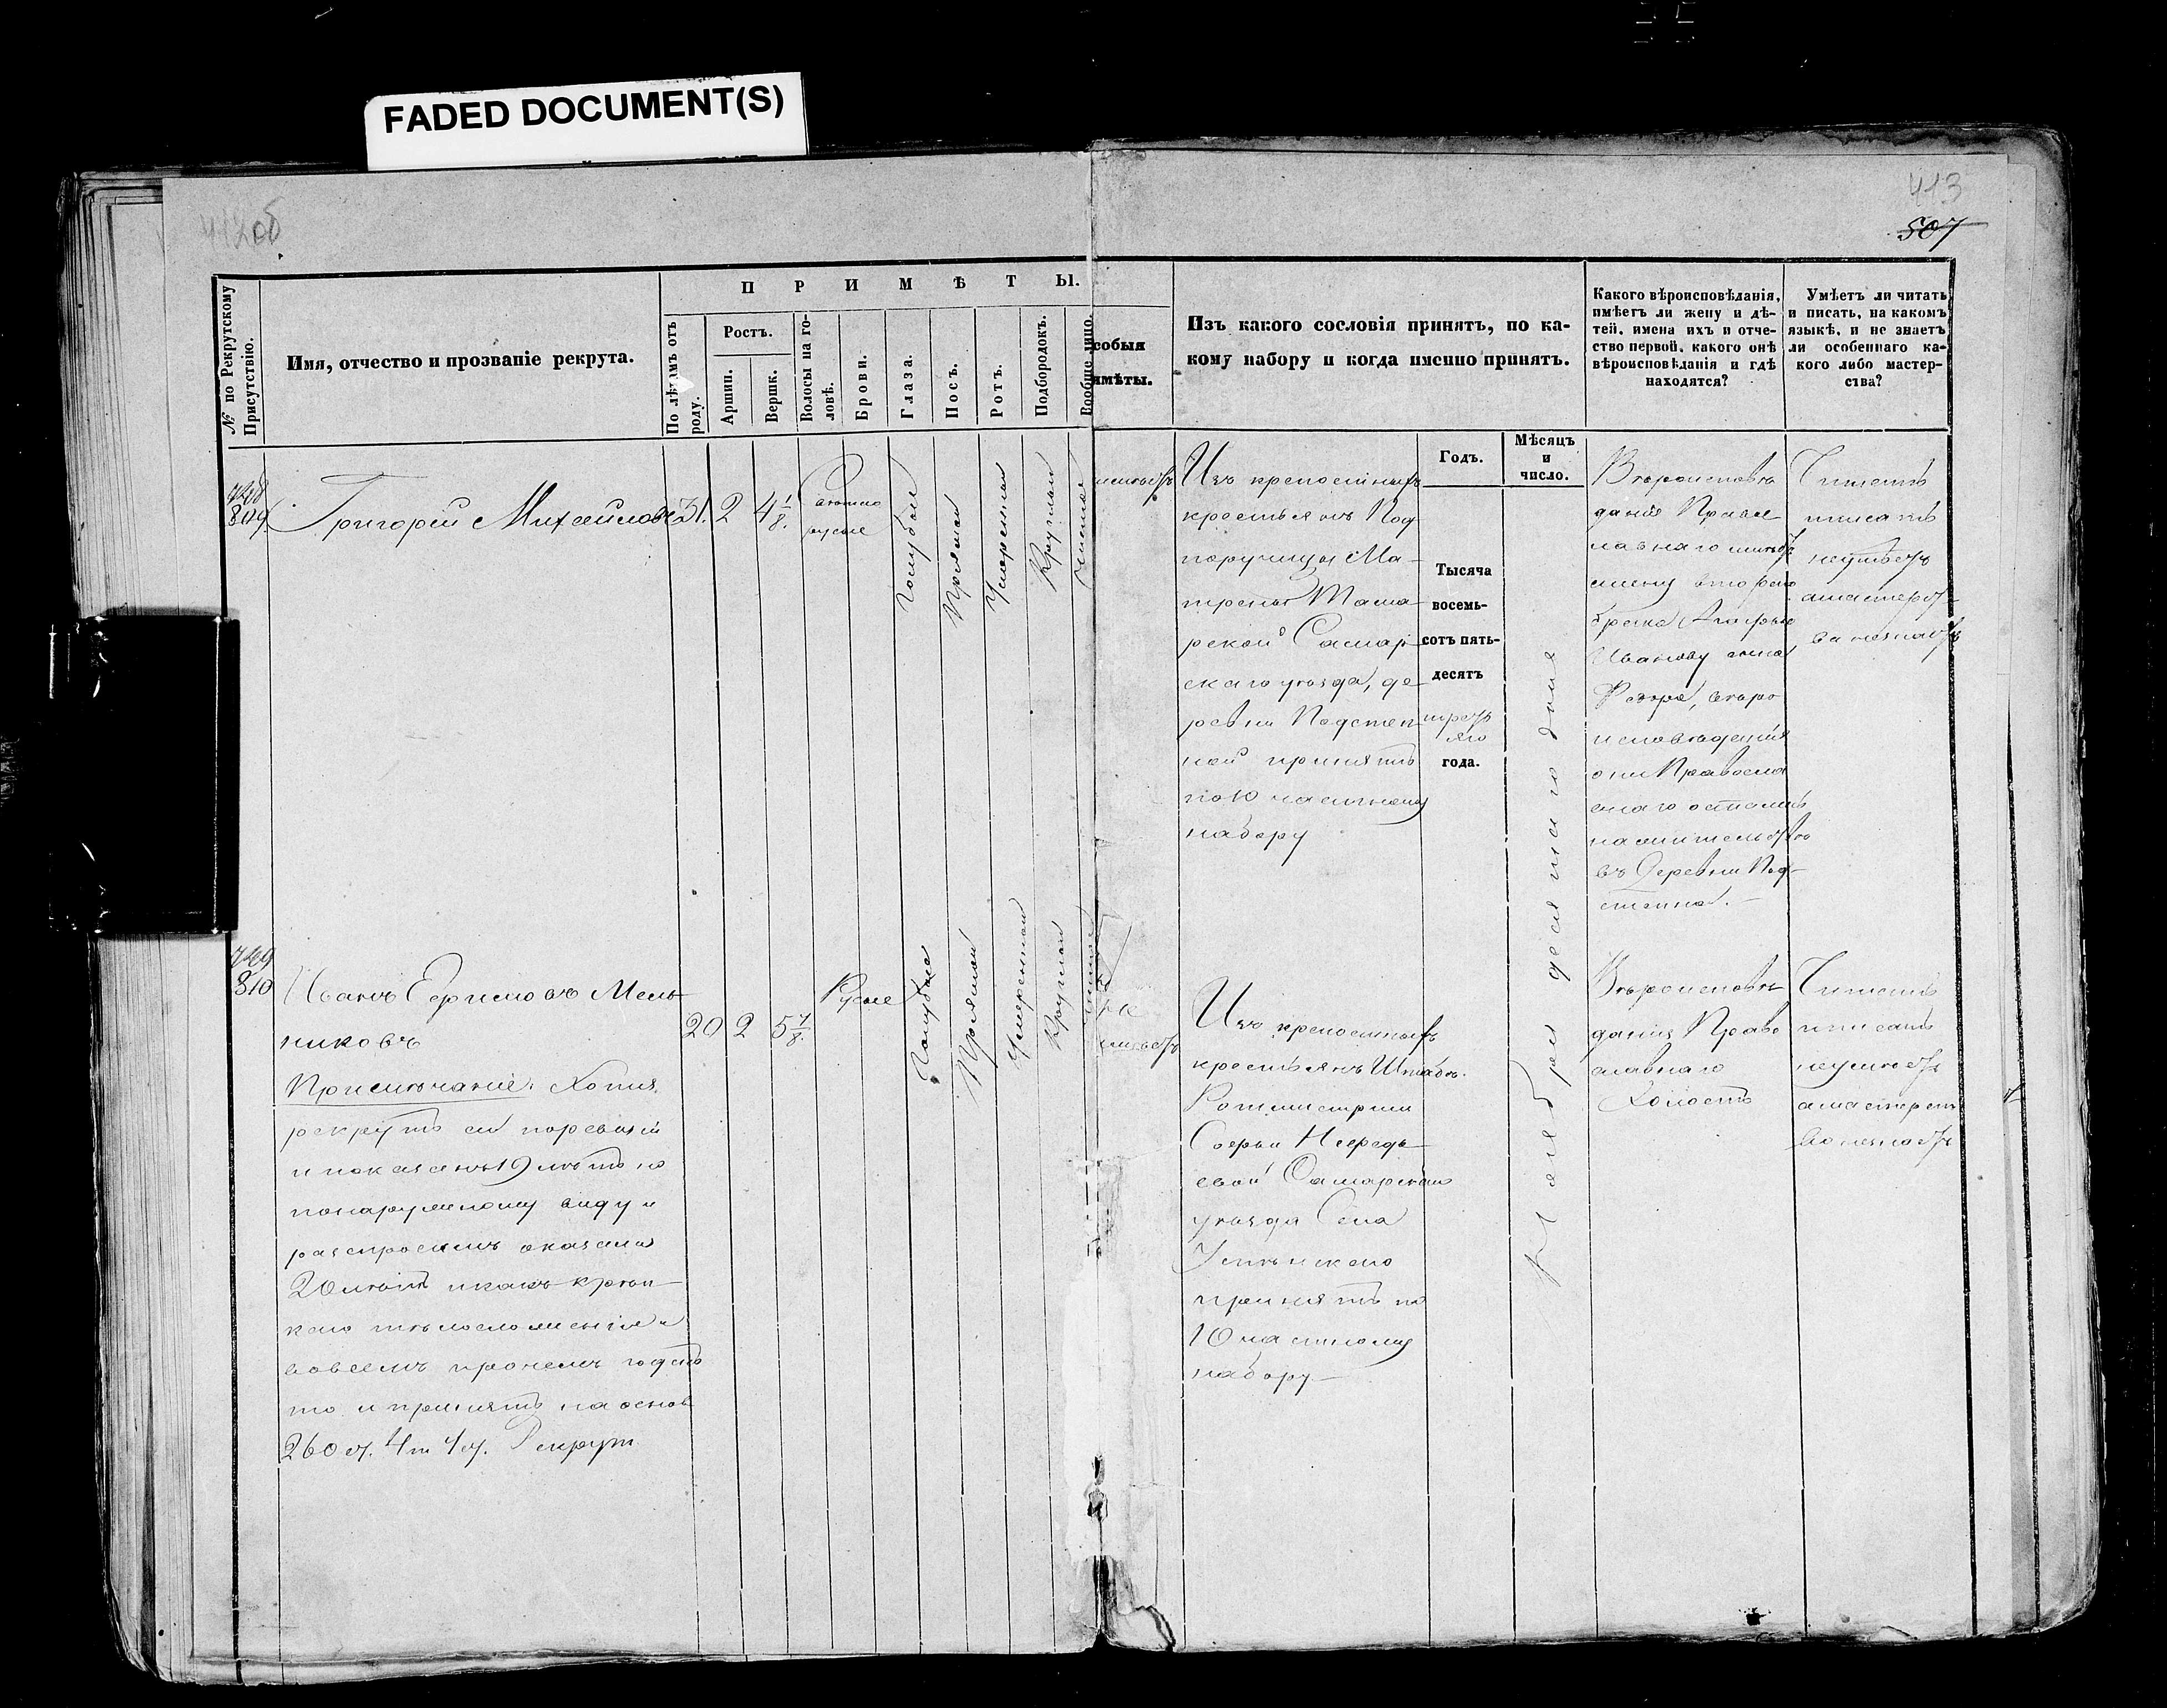 FADED DOCUMENT(S)
412об
413
507
№ по Рекрутскому Присутствію.
Имя, отчество и прозваніе рекрута.
ПРИМѢТЫ.
По лѣтамъ отъ роду.
Ростъ.
Аршин.
Вершк.
Волосы на головѣ.
Брови.
Глаза.
Носъ.
Ротъ.
Подбородокъ.
Вообще лицо.
особыя
имѣты.
Изъ какого сословія принятъ, по ка-
кому набору и когда именно принятъ.
Годъ.
Мѣсяцъ
и
число.
Какого вѣроисповѣданія,
имѣетъ ли жену и дѣ-
тей, имена ихъ и отче-
ство первой, какого онѣ
вѣроисповѣданія и гдѣ
находятся?
Умѣетъ ли читать
и писать, на какомъ
языкѣ, и не знаетъ
ли особеннаго ка-
кого либо мастер-
ства?
809
Григорій Михайловъ
31.
2
4 1/8.
Свѣтло
русые
Голубые
Прямой
Умеренной
Круглой
чистое
неимѣетъ
Изъ крепостныхъ
крестьянъ Под
поручицы Ма-
трены
Самар
скаго уѣзда, де
ревни Подстеп
ной принятъ
по 10 частному
набору
Тысяча
восемь-
сотъ пять-
десятъ
треть
яго
года.
Ноября десятаго дня
Вѣроисповѣ
данія Право
славнаго имѣетъ
жену втораго
брака
Иванову сына
Петра, вѣро
исповѣданія
они Правосла
внаго остались
на жительствѣ
въ Деревни Под-
степной.
Читать
писать
неумѣетъ
а мастерст
ва незнаетъ
729
810
Иванъ Ефимовъ Мель
никовъ
Примѣчаніе: Хотя
рекрутъ сей по ревизіи
и показанъ 19 лѣтъ но
по наружному виду и
распросамъ оказался
20 лѣтъ и какъ крѣп-
каго тѣлосложенія и
во всемъ прочемъ годенъ
то и принятъ на основ
260 ст. 4 т 1 ч. Рекрут
20
2
5 7/8.
Русые
Голубые
Прямой
Умеренной
Круглой
чистое
не
имѣетъ
Изъ крепостныхъ
крестьянъ Штабъ.
Ротмистрши
Софьи
Самарскаго
уѣзда Села
принятъ по
10 частному
набору
Вѣроисповѣ
данія Право
славнаго
Холостъ
Читать
писать
неумѣетъ
а мастерст
ва незнаетъ